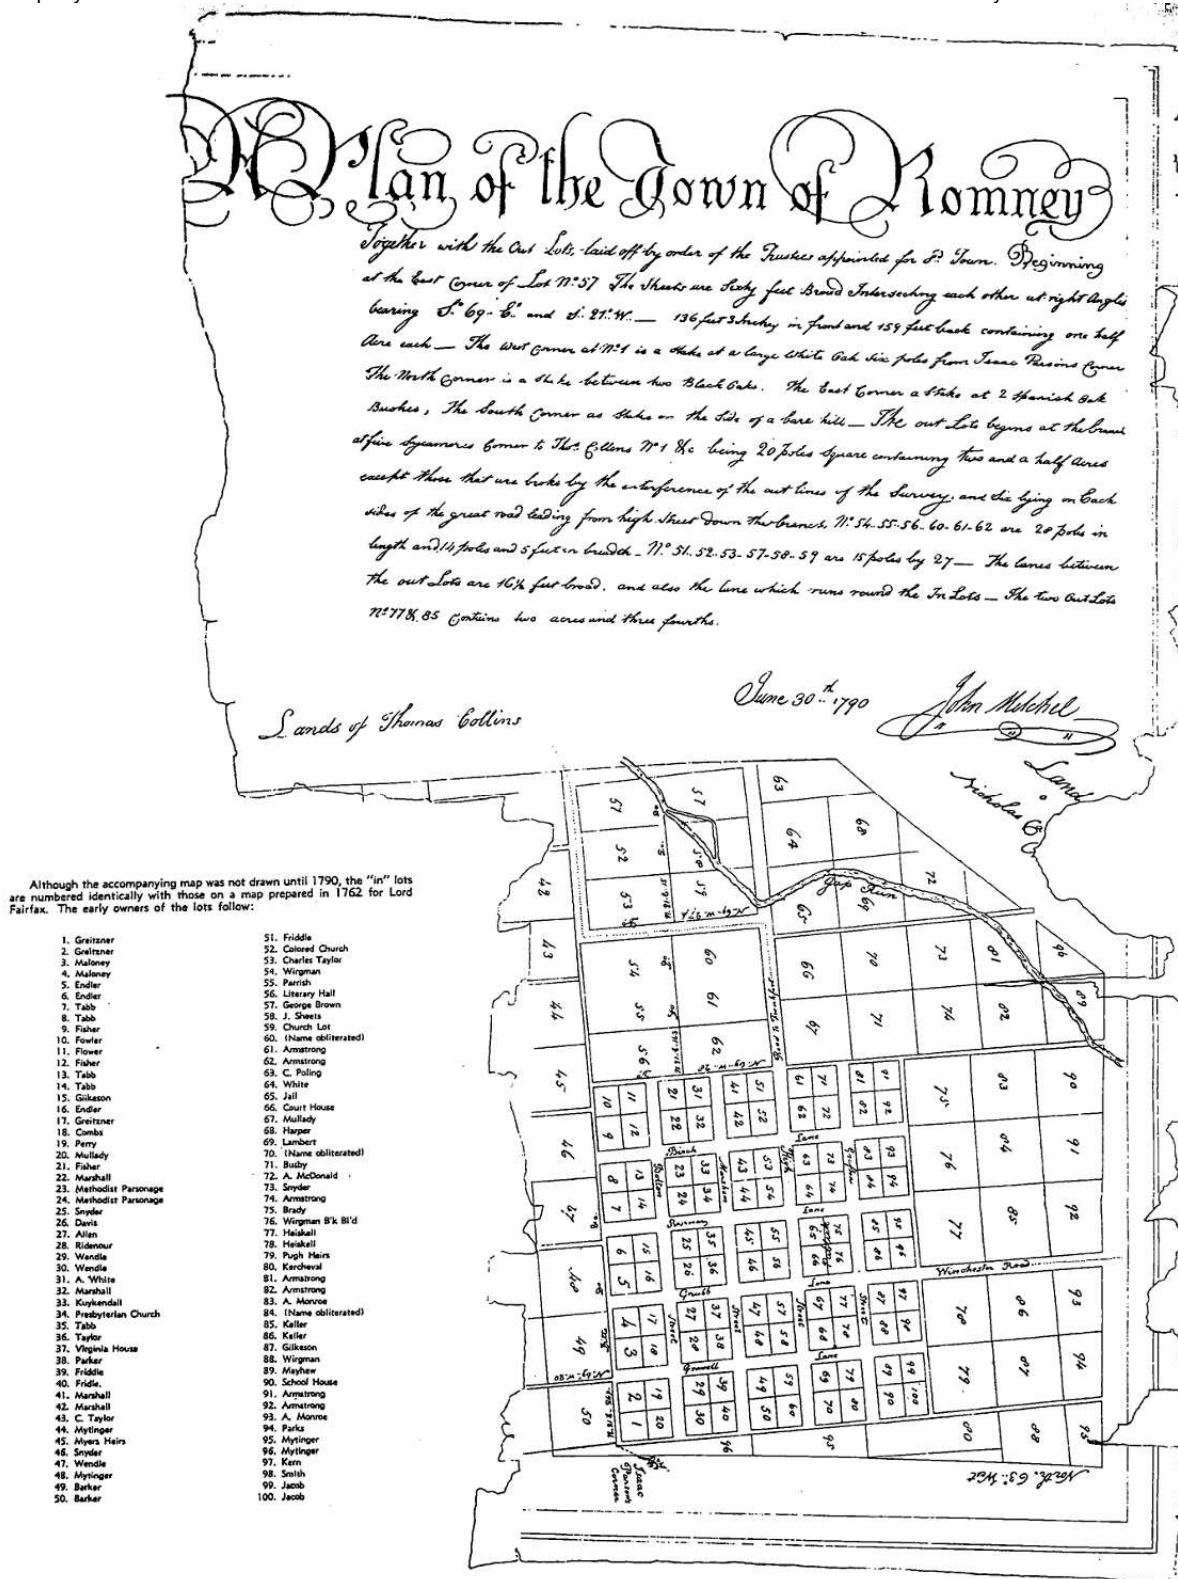 A Plan of the Town of Romney
Together with the Out Lots, laid off by order of the Trustees appointed for sd. Town. Beginning
at the East Corner of Lot No 57 The Streets are Sixty feet Broad Intersecting each other at right Angles
bearing S. 69 E. and S. 21 W. — 136 feet 3 Inches in front and 159 feet back containing one half
Acre each — The West Corner at No 1 is a stake at a large White Oak six poles from Isaac Parsons Corner
The North Corner is a stake between two Black Oaks. The East Corner a Stake at 2 Spanish Oak
Bushes, The South Corner as stake on the side of a bare hill — The out Lots begins at the
at five Sycamores Corner to Thos. Collens No 1 &c being 20 poles Square containing two and a half Acres
except those that are broke by the interference of the out lines of the Survey, and six lying on Each
sides of the great road leading from high Street down the branch, No 54-55-56-60-61-62 are 28 poles in
length and 14 poles and 5 feet in breadth - No 51-52-53-57-58-59 are 15 poles by 27 — The lanes between
the out Lots are 16½ feet broad, and also the lane which runs round the In Lots — The two Out Lots
No 77 & 85 Contains two acres and three fourths.
June 30th 1790
John Mitchel
Lands of Thomas Collins
Land
Nicholas
Although the accompanying map was not drawn until 1790, the "in" lots
are numbered identically with those on a map prepared in 1762 for Lord
Fairfax. The early owners of the lots follow:
1. Greitzner
2. Greitzner
3. Maloney
4. Maloney
5. Endler
6. Endler
7. Tabb
8. Tabb
9. Fisher
10. Fowler
11. Flower
12. Fisher
13. Tabb
14. Tabb
15. Gilkeson
16. Endler
17. Greitzner
18. Combs
19. Perry
20. Mullady
21. Fisher
22. Marshall
23. Methodist Parsonage
24. Methodist Parsonage
25. Snyder
26. Davis
27. Allen
28. Ridenour
29. Wendle
30. Wendle
31. A. White
32. Marshall
33. Kuykendall
34. Presbyterian Church
35. Tabb
36. Taylor
37. Virginia House
38. Parker
39. Friddle
40. Fridle.
41. Marshall
42. Marshall
43. C. Taylor
44. Mytinger
45. Myers Heirs
46. Snyder
47. Wendle
48. Mytinger
49. Barker
50. Barker
51. Friddle
52. Colored Church
53. Charles Taylor
54. Wirgman
55. Parrish
56. Literary Hall
57. George Brown
58. J. Sheets
59. Church Lot
60. (Name obliterated)
61. Armstrong
62. Armstrong
63. C. Poling
64. White
65. Jail
66. Court House
67. Mullady
68. Harper
69. Lambert
70. (Name obliterated)
71. Busby
72. A. McDonald
73. Snyder
74. Armstrong
75. Brady
76. Wirgman B'k Bl'd
77. Heiskell
78. Heiskell
79. Pugh Heirs
80. Kercheval
81. Armstrong
82. Armstrong
83. A. Monroe
84. (Name obliterated)
85. Keller
86. Keller
87. Gilkeson
88. Wirgman
89. Mayhew
90. School House
91. Armstrong
92. Armstrong
93. A. Monroe
94. Parks
95. Mytinger
96. Mytinger
97. Kern
98. Smith
99. Jacob
100. Jacob
51 57 63
52 58 64 68
42 53 59 65 69 72
Gap Run
43 54 60 66 70 73 81 96
44 55 61 67 71 74 82 89
45 56 62
Road to Frankfort
10 11 21 31 41 51 61 71 81 91 75 83 90
9 12 22 32 42 52 62 72 82 92
Birch Lane
46 8 13 23 33 43 53 63 73 83 93 76 84 91
7 14 24 34 44 54 64 74 84 94
Rosemary Lane
47 6 15 25 35 45 55 65 75 85 95 77 85 92
5 16 26 36 46 56 66 76 86 96
Grubb Lane
Winchester Road
48 4 17 27 37 47 57 67 77 87 97 78 86 93
49 3 18 28 38 48 58 68 78 88 98
Gravell Lane
2 19 29 39 49 59 69 79 89 99 79 87 94
50 1 20 30 40 50 60 70 80 90 100
96 95 80 88 95
Street
High Street
Isaac
Parsons
Corner
North 63° West